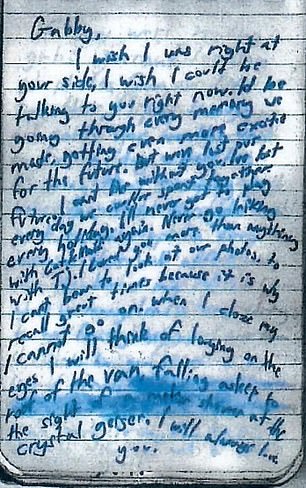 Gabby,
I wish I was right at
your side, I wish I could be
talking to you right now. I'd be
going through every memory we
made, getting even more excited
for the future. But we've lost our
future. I can't live without you. I've lost
every day we could've spent together,
every holiday. I'll never get to play
with again. Never go hiking
with T.J. I loved you more than anything
I can't bear to look at our photos, to
recall great times because it is why
I cannot go on. When I close my
eyes I will think of laughing on the
roof of the van falling asleep to
the sight of a at the
crystal geyser. I will always love
you.